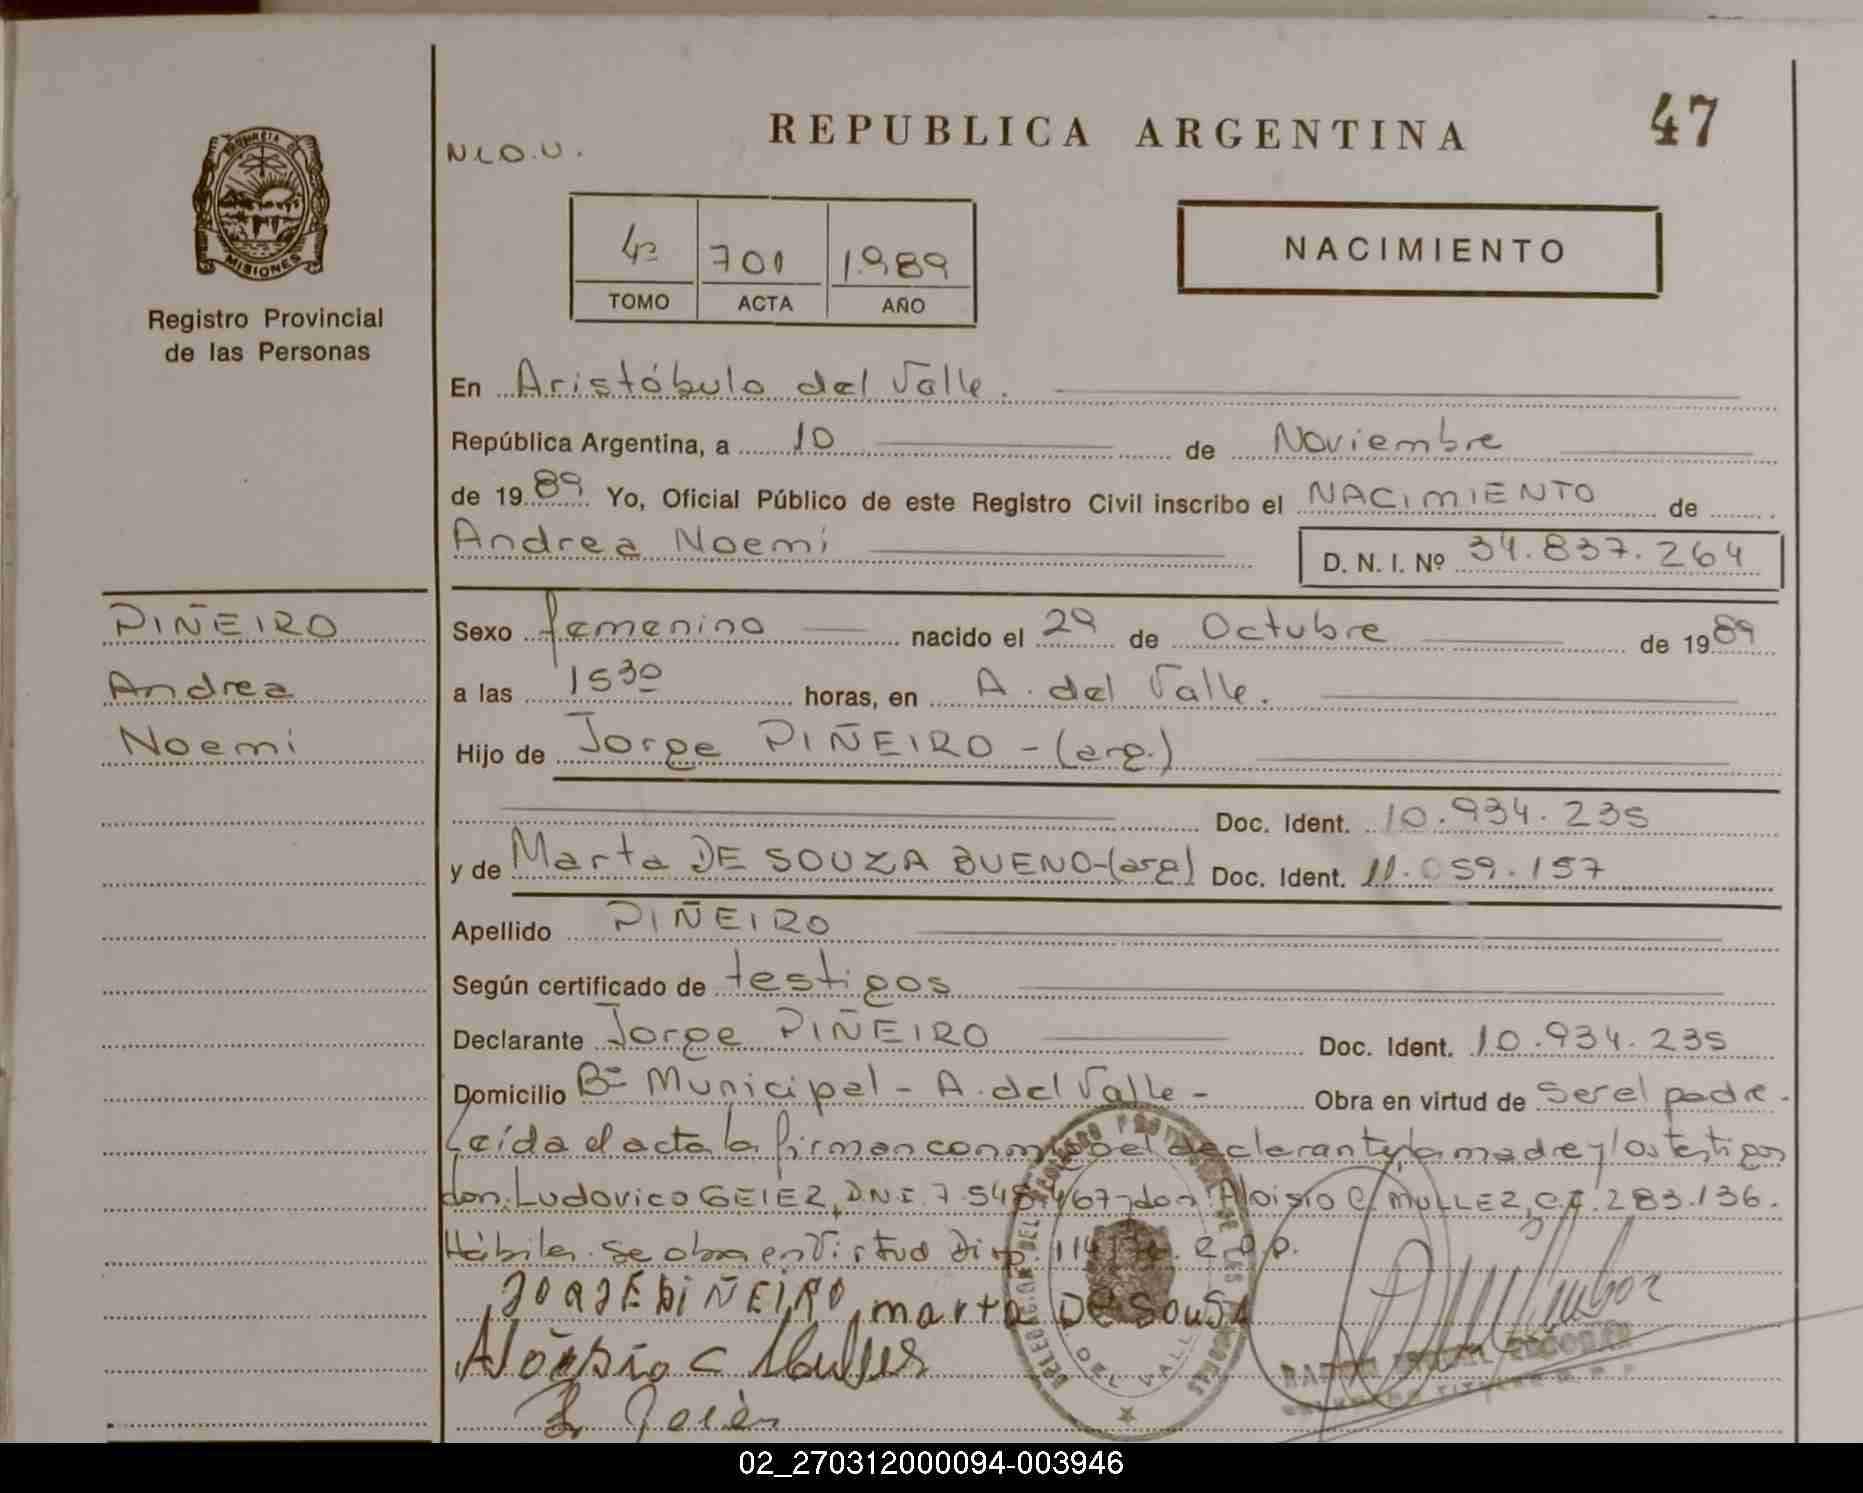 47
REPUBLICA ARGENTINA
MISIONES
Registro Provincial
de las Personas
4º 701 1.989
TOMO ACTA AÑO
NACIMIENTO
En Aristóbulo del Valle.
República Argentina, a 10 de Noviembre
de 1989 Yo, Oficial Público de este Registro Civil inscribo el NACIMIENTO de
Andrea Noemi D. N. I. Nº 34.837.264
PIÑEIRO
Andrea
Noemi
Sexo femenino nacido el 29 de Octubre de 1989
a las 1530 horas, en A. del Valle.
Hijo de Jorge PIÑEIRO - (arg.)
Doc. Ident. 10.934.235
y de Marta DE SOUZA BUENO-(arg) Doc. Ident. 11.059.157
Apellido PIÑEIRO
Según certificado de testigos
Declarante Jorge PIÑEIRO Doc. Ident. 10.934.235
Domicilio Bº Municipal - A. del Valle - Obra en virtud de ser el padre -
Leída el acta la firman conmigo el declarante, la madre y los testigos
don Ludovico GEIER, D.N.I. 7.548.467 y don Aloisio C. MULLER, C.I. 283.136.
Hábiles. Se obra en Virtud Disp. 114
JORJE PIÑEIRO marta DE SouSA
DEL VALLE
02_270312000094-003946